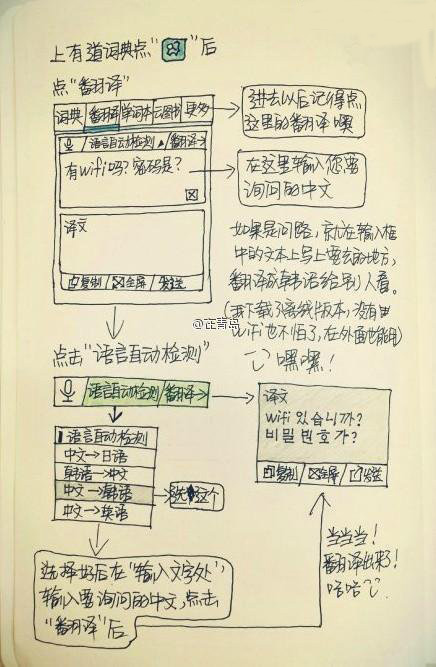 上有道词典点“ ”后
点“翻译”
词典 翻译 单词本 云图书 更多
进去以后记得点
这里的翻译噢
语言自动检测 翻译→
有wifi吗?密码是?
在这里输入你要
询问的中文
译文
复制 全屏 发送
如果是问路，就在输入框
中的文本上写上要去的地方，
翻译成韩语给别人看。
(再下载了离线版本，没有
wifi也不怕了，在外面也能用)
嘿嘿!
@在青岛
点击“语言自动检测”
语言自动检测 翻译→
译文
wifi 있습니까?
비밀 번호가?
复制 全屏 发送
语言自动检测
中文→日语
韩语→中文
中文→韩语
选这个
中文→英语
当当当!
翻译出来了!
哈哈
选择好后在“输入文字处”
输入要询问的中文，点击
“翻译”后